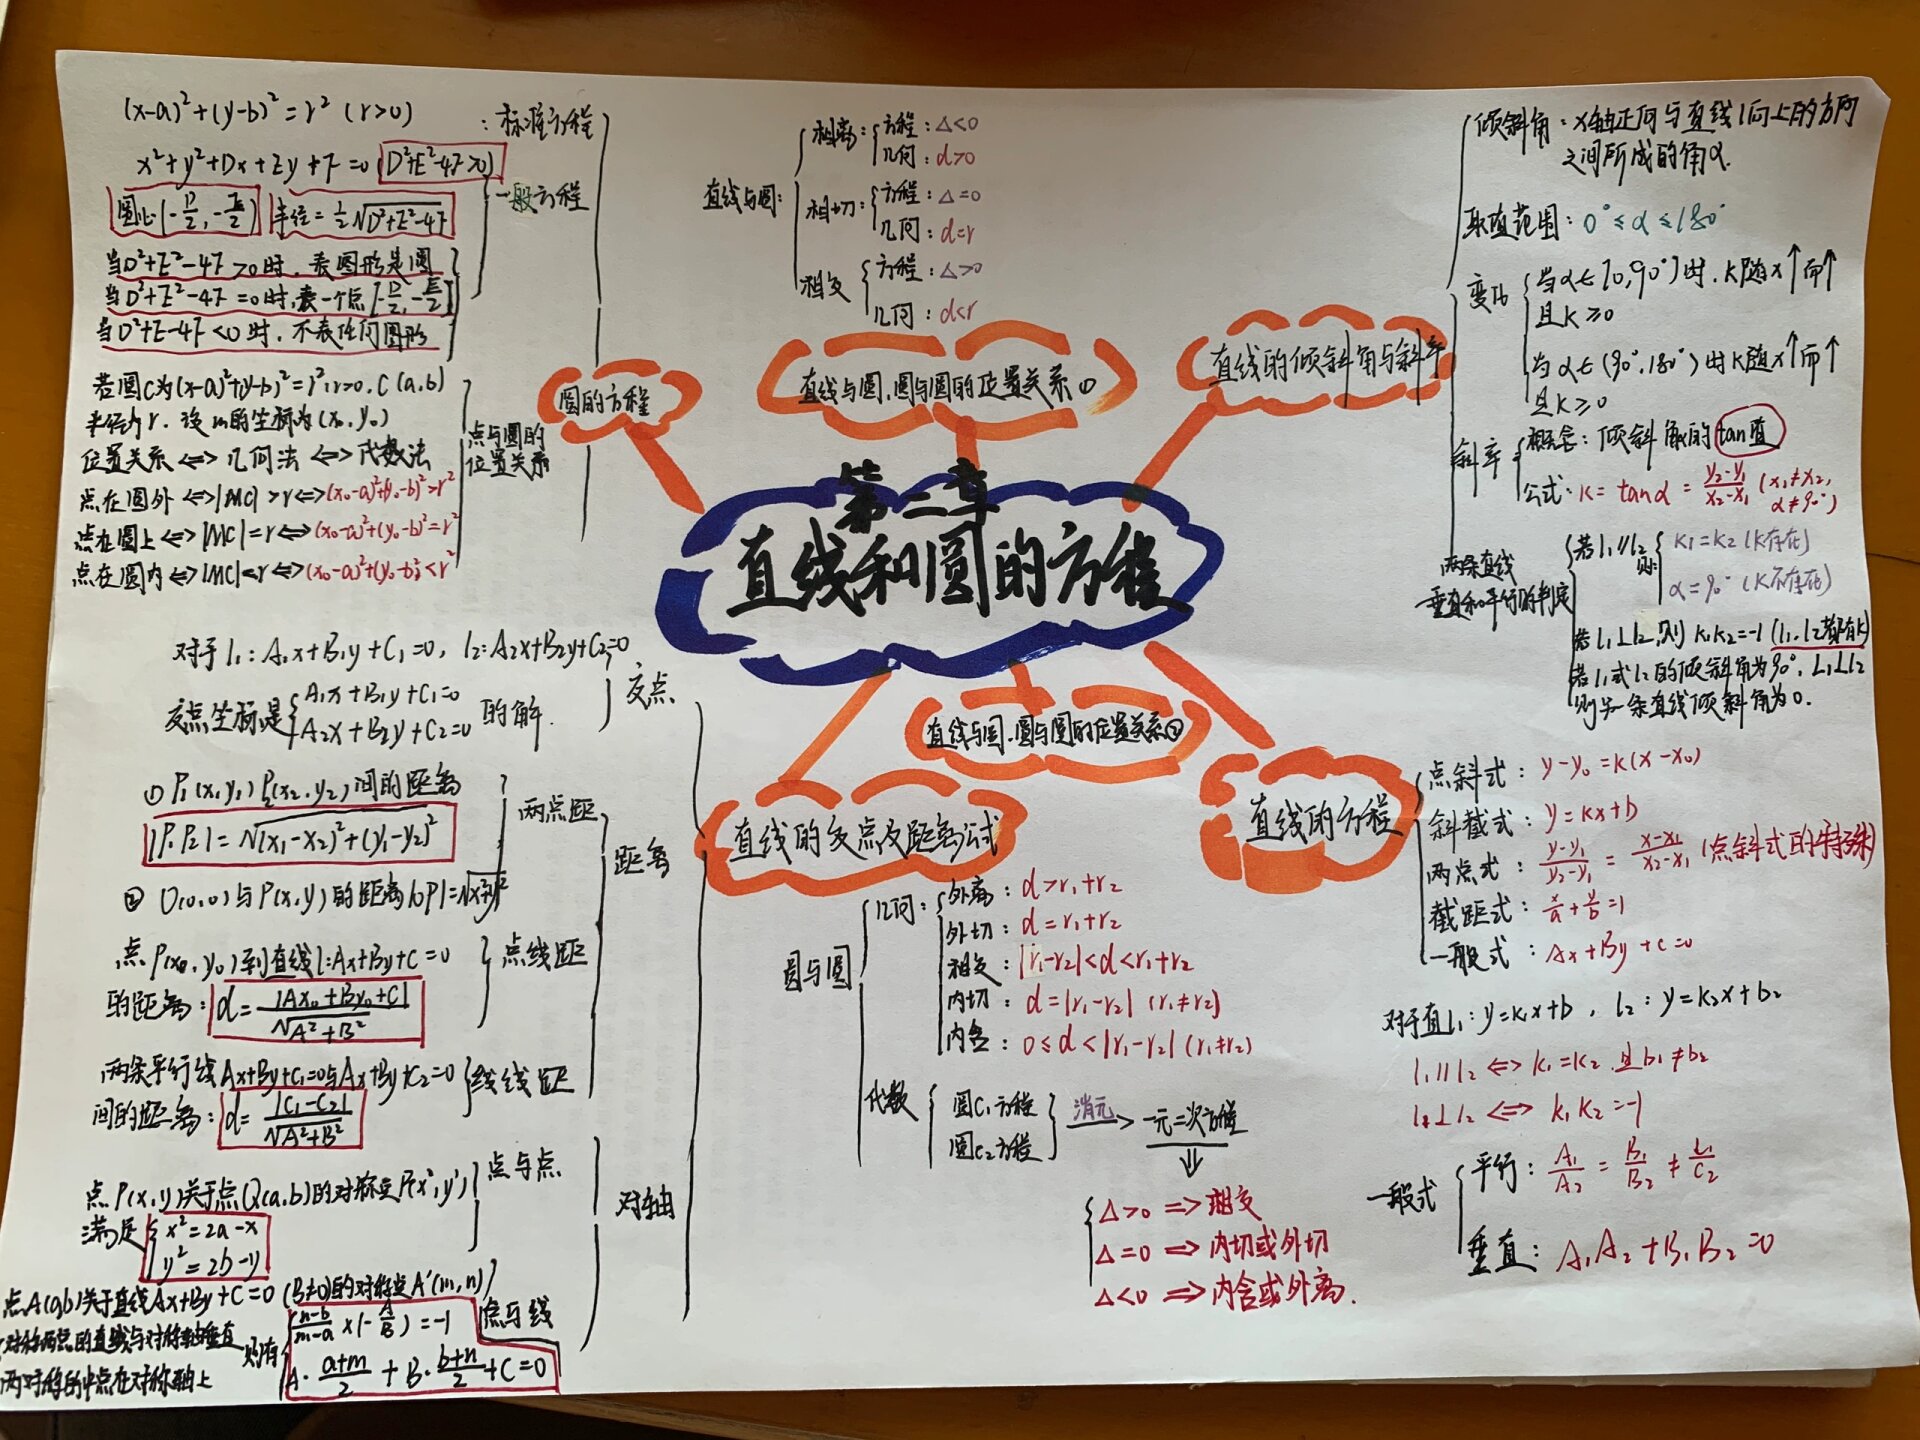 第二章
直线和圆的方程
圆的方程
(x-a)²+(y-b)²=r² (r>0)
:标准方程
x²+y²+Dx+Ey+F=0 (D²+E²-4F>0)
一般方程
圆心(-D/2, -E/2) 半径=½√D²+E²-4F
当D²+E²-4F>0时,表图形是圆
当D²+E²-4F=0时,表一个点[-D/2, -E/2]
当D²+E-4F<0时,不表任何图形
若圆C为(x-a)²+(y-b)²=r²,r>0,C(a,b)
半径为r.设m的坐标为(x₀,y₀)
位置关系⇔几何法⇔代数法
点在圆外⇔|MC|>r⇔(x₀-a)²+(y₀-b)²>r²
点在圆上⇔|MC|=r⇔(x₀-a)²+(y₀-b)²=r²
点在圆内⇔|MC|<r⇔(x₀-a)²+(y₀-b)²<r²
点与圆的
位置关系
直线与圆,圆与圆的位置关系①
直线与圆:
相离: 方程:Δ<0
几何:d>0
相切: 方程:Δ=0
几何:d=r
相交 方程:Δ>0
几何:d<r
直线的倾斜角与斜率
倾斜角:x轴正向与直线l向上的方向
之间所成的角α.
取值范围:0°≤α≤180°
变化
当α∈[0,90°)时,K随x↑而↑
且K≥0
当α∈(90°,180°)时K随x↑而↑
且K≥0
斜率
概念:倾斜角的tan值
公式:K=tanα=y₂-y₁/x₂-x₁ (x₁≠x₂,
α≠90°)
两条直线
垂直和平行的判定
若l₁∥l₂ 则: K₁=K₂(K存在)
α=90°(K不存在)
若l₁⊥l₂,则K₁K₂=-1(l₁.l₂都有K)
若l₁或l₂的倾斜角为90°,L₁⊥l₂
则另一条直线倾斜角为0.
对于l₁:A₁x+B₁y+C₁=0, l₂:A₂x+B₂y+C₂=0
交点坐标是 A₁x+B₁y+C₁=0
A₂x+B₂y+C₂=0 的解.
交点
直线的交点及距离公式
①P₁(x₁y₁) P₂(x₂,y₂)间的距离
|P₁P₂|=√(x₁-x₂)²+(y₁-y₂)²
两点距
②O(0,0)与P(x,y)的距离|OP|=√x²+y²
距离
点P(x₀,y₀)到直线l:Ax+By+C=0
的距离:d=|Ax₀+By₀+C|/√A²+B²
点线距
两条平行线Ax+By+C₁=0与Ax+By+C₂=0
间的距离:d=|C₁-C₂|/√A²+B²
线线距
点P(x,y)关于点Q(a,b)的对称点P(x',y')
满足 x²=2a-x
y²=2b-y
点与点
对轴
点A(a,b)关于直线Ax+By+C=0(B≠0)的对称点A'(m,n)
对称两点的直线与对称轴垂直
两对称的中点在对称轴上
则有 n-b/m-a×(-A/B)=-1
A·a+m/2+B·b+n/2+C=0
点与线
直线与圆,圆与圆的位置关系②
圆与圆
几何:
外离:d>r₁+r₂
外切:d=r₁+r₂
相交:|r₁-r₂|<d<r₁+r₂
内切:d=|r₁-r₂| (r₁≠r₂)
内含:0≤d<|r₁-r₂| (r₁≠r₂)
代数
圆C₁方程
圆C₂方程
消元
一元二次方程
⇓
Δ>0⇒相交
Δ=0⇒内切或外切
Δ<0⇒内含或外离.
直线的方程
点斜式:y-y₀=k(x-x₀)
斜截式:y=kx+b
两点式:y-y₁/y₂-y₁=x-x₁/x₂-x₁(点斜式的特殊)
截距式:x/a+y/b=1
一般式:Ax+By+C=0
对于直l₁:y=k₁x+b, l₂:y=k₂x+b₂
l₁∥l₂⇔k₁=k₂.且b₁≠b₂
l₁⊥l₂⇔k₁k₂=-1
一般式
平行:A₁/A₂=B₁/B₂≠C₁/C₂
垂直:A₁A₂+B₁B₂=0